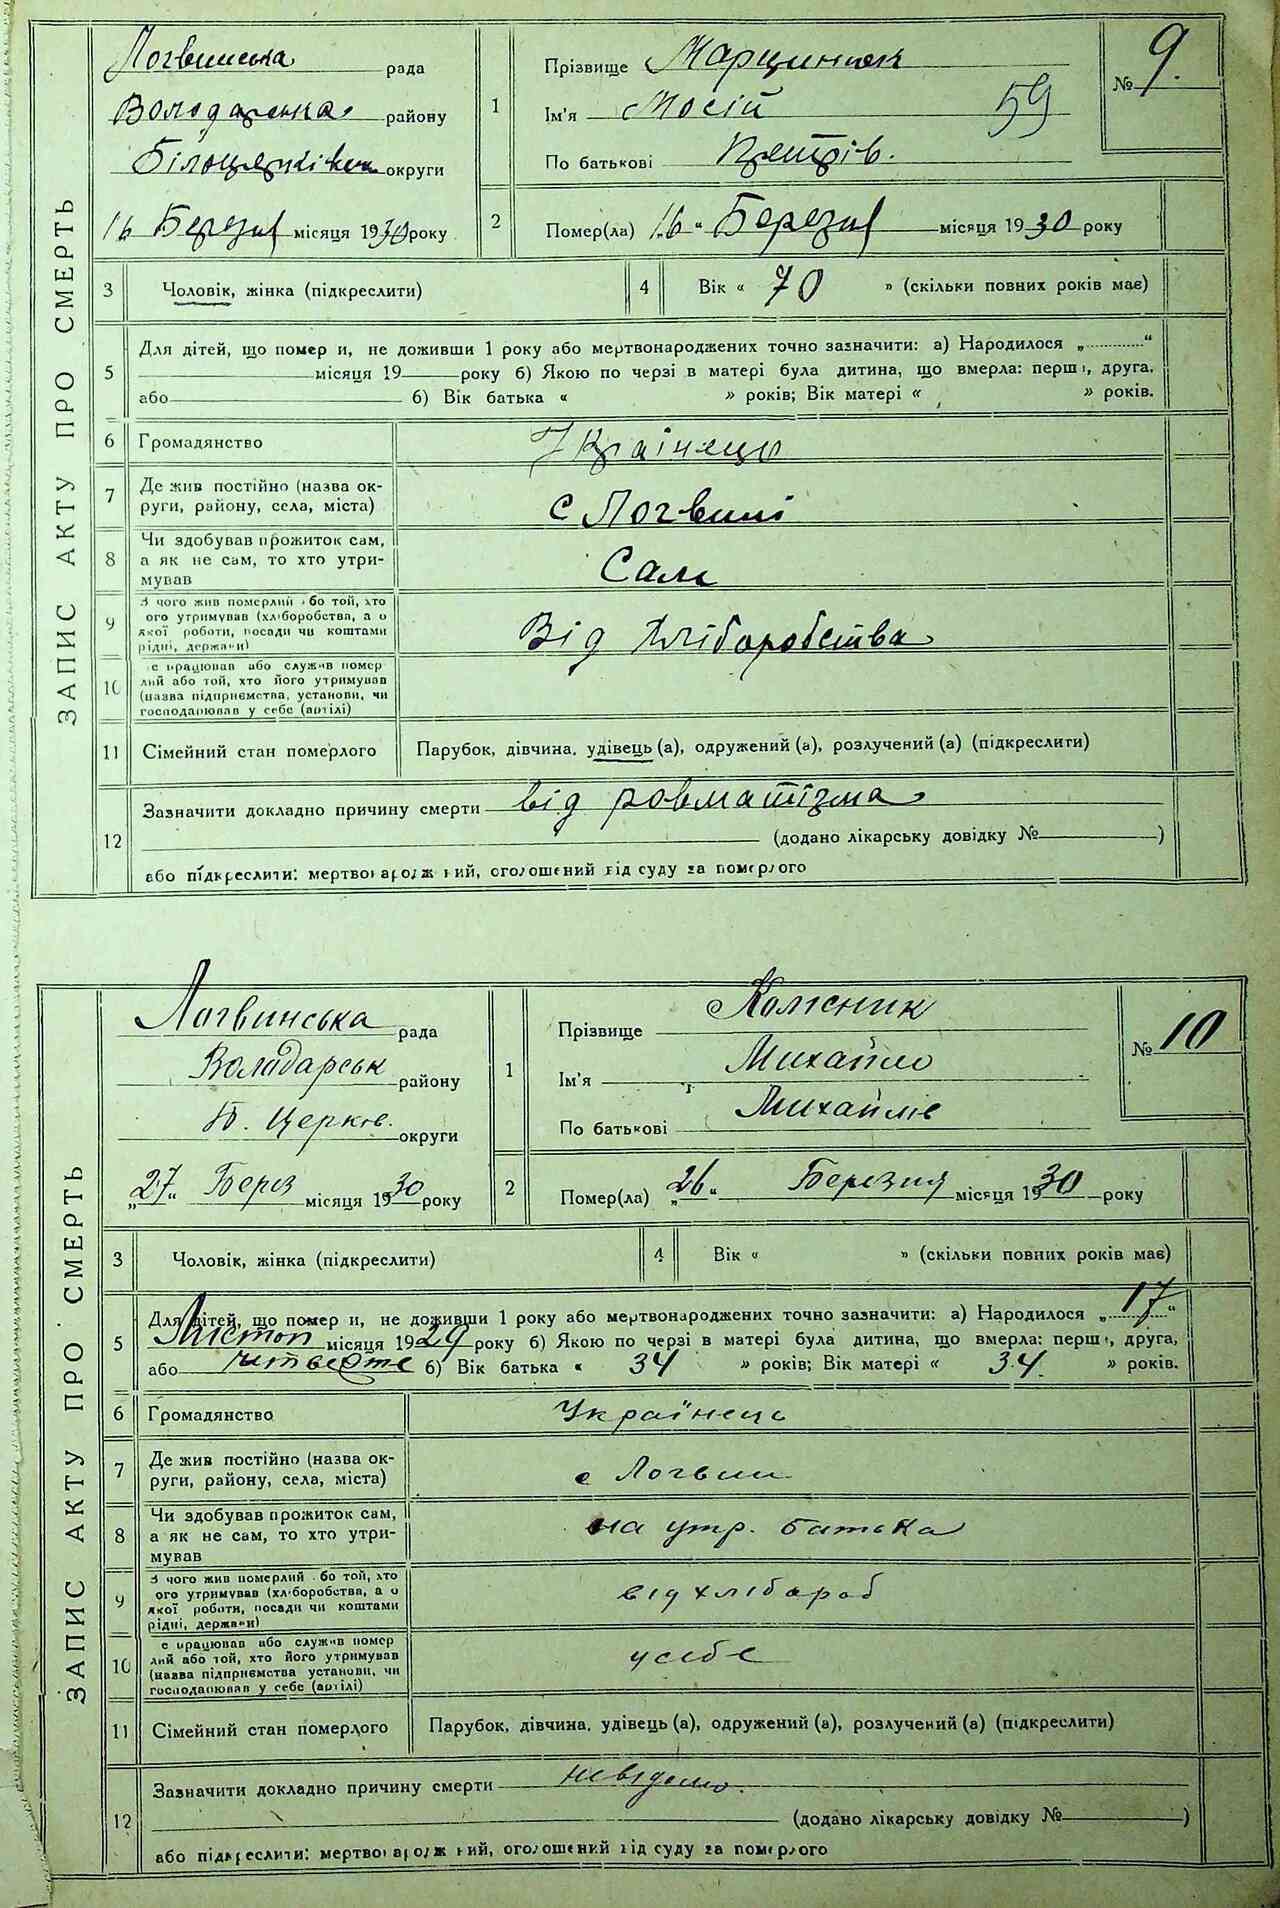 ЗАПИС АКТУ ПРО СМЕРТЬ
Логвинська рада
Володарська району
Білоцерківськ округи
16 Березня місяця 1930 року
1 Прізвище Марцинюк
Ім'я Мосій 59
По батькові Петрів.
№ 9.
2 Помер(ла) 16 " Березня місяця 1930 року
3 Чоловік, жінка (підкреслити)
4 Вік « 70 » (скільки повних років має)
5 Для дітей, що помер и, не доживши 1 року або мертвонароджених точно зазначити: а) Народилося „ “
місяця 19 року б) Якою по черзі в матері була дитина, що вмерла: перш , друга,
або б) Вік батька « » років; Вік матері « » років.
6 Громадянство Українець
7 Де жив постійно (назва ок-
руги, району, села, міста) с Логвині
8 Чи здобував прожиток сам,
а як не сам, то хто утри-
мував Сам
9 З чого жив померлий бо той, хто
ого утримував (хліборобства, а о
якої роботи, посади чи коштами
рідні, держави) Від хліборобства
10 е працював або служив помер
лий або той, хто його утримував
(назва підприємства, установи, чи
господарював у себе (артілі)
11 Сімейний стан померлого Парубок, дівчина, удівець (а), одружений (а), розлучений (а) (підкреслити)
12 Зазначити докладно причину смерти від ровматізма
(додано лікарську довідку № )
або підкреслити: мертвонароджений, оголошений від суду за померлого
ЗАПИС АКТУ ПРО СМЕРТЬ
Логвинська рада
Володарськ району
Б. Церків. округи
„27“ Берез місяця 1930 року
1 Прізвище Колісник
Ім'я Михайло
По батькові Михайлів
№ 10
2 Помер(ла) „26“ Березня місяця 1930 року
3 Чоловік, жінка (підкреслити)
4 Вік « » (скільки повних років має)
5 Для дітей, що помер и, не доживши 1 року або мертвонароджених точно зазначити: а) Народилося „ 17 “
Листоп місяця 1929 року б) Якою по черзі в матері була дитина, що вмерла: перш , друга,
або читверте б) Вік батька « 34 » років; Вік матері « 34. » років.
6 Громадянство Українець
7 Де жив постійно (назва ок-
руги, району, села, міста) с Логвин
8 Чи здобував прожиток сам,
а як не сам, то хто утри-
мував на утр. батька
9 З чого жив померлий бо той, хто
ого утримував (хліборобства, а о
якої роботи, посади чи коштами
рідні, держави) від хлібароб
10 е працював або служив помер
лий або той, хто його утримував
(назва підприємства установи, чи
господарював у себе (артілі) усебе
11 Сімейний стан померлого Парубок, дівчина, удівець (а), одружений (а), розлучений (а) (підкреслити)
12 Зазначити докладно причину смерти невідомо.
(додано лікарську довідку № )
або підкреслити: мертвонароджений, оголошений від суду за померлого